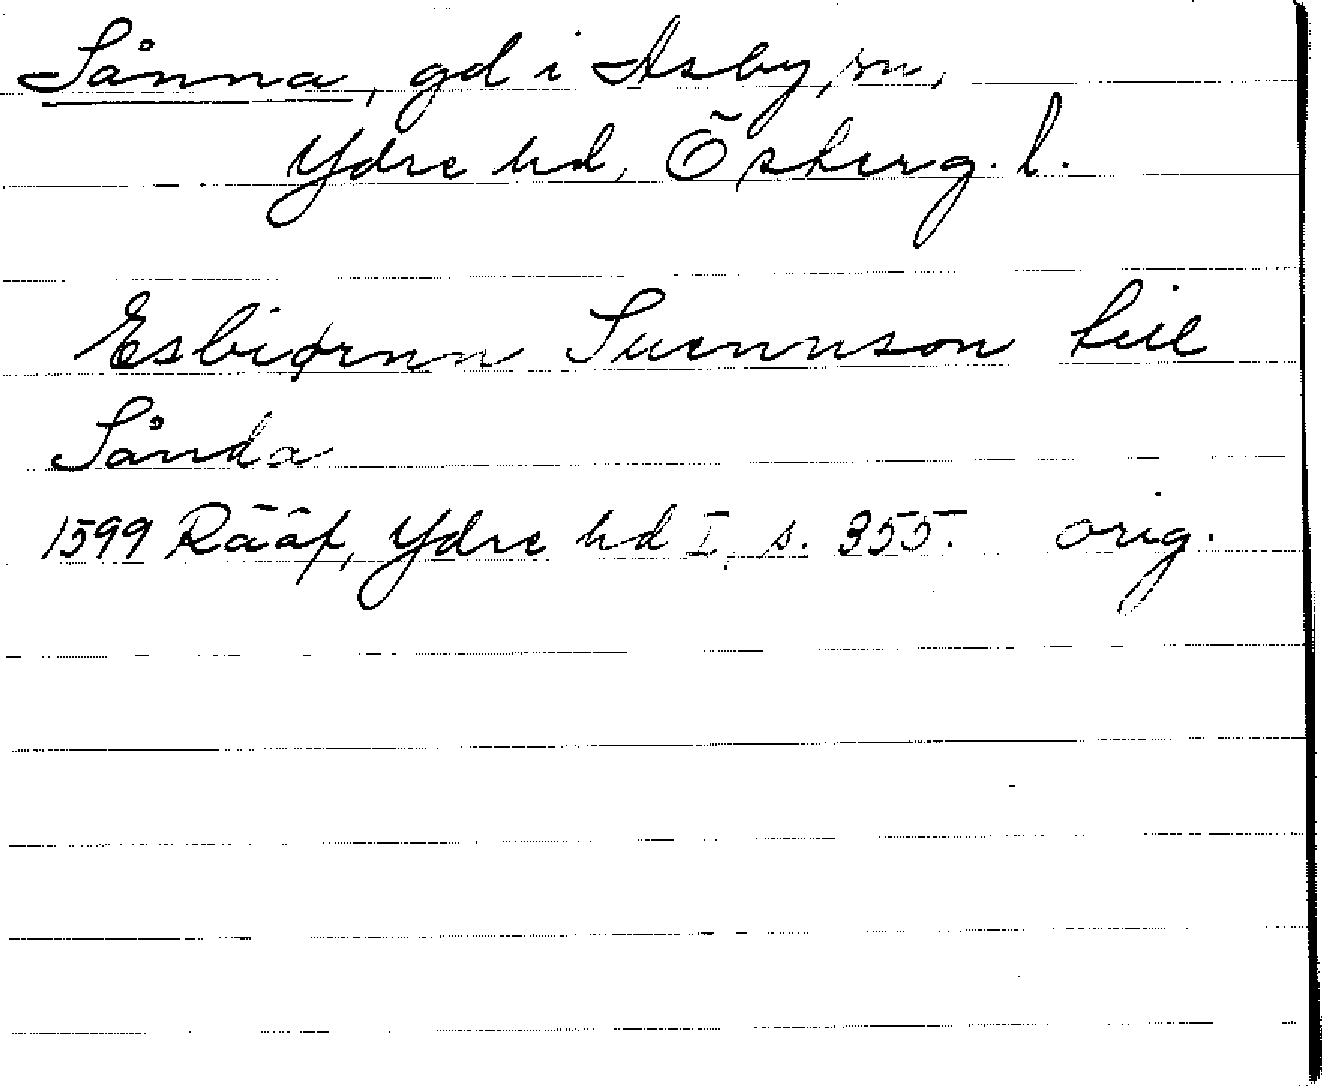 Sånna, gd i Asby sn,
Ydre hd, Österg. l.
Esbiørnn Suennson till
Sånda
1599 Rääf, Ydre hd I, s. 355. orig.